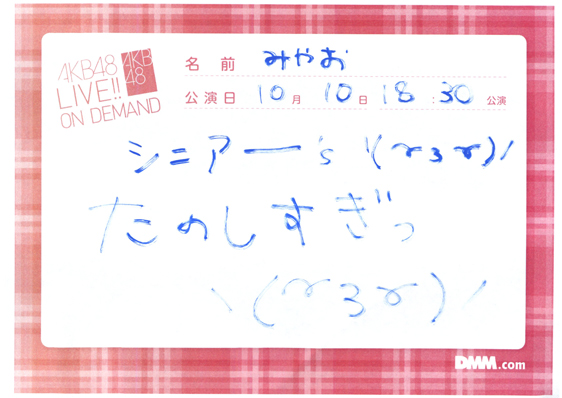 AKB48
LIVE!!
ON DEMAND
AKB
48
名前 みやお
公演日 10月10日 18:30公演
シニアー's \(γ3γ)/
たのしすぎっ
\(γ3γ)/
DMM.com